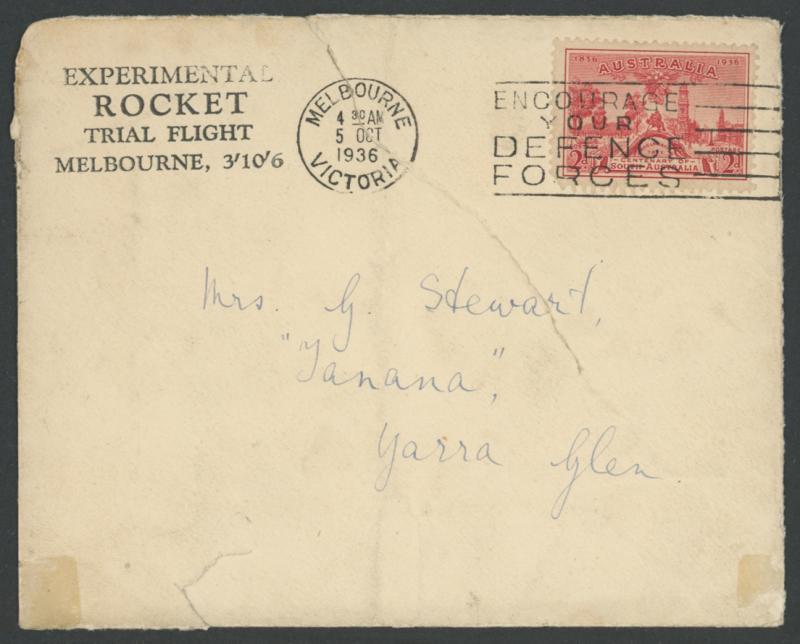 EXPERIMENTAL
ROCKET
TRIAL FLIGHT
MELBOURNE, 3'10'6
MELBOURNE
4 30 AM
5 OCT
1936
VICTORIA
1836 AUSTRALIA 1936
ENCOURAGE
YOUR
DEFENCE
FORCES
POSTAGE
2d 2d
CENTENARY OF
SOUTH AUSTRALIA
Mrs. G. Stewart,
"Yanana",
Yarra Glen